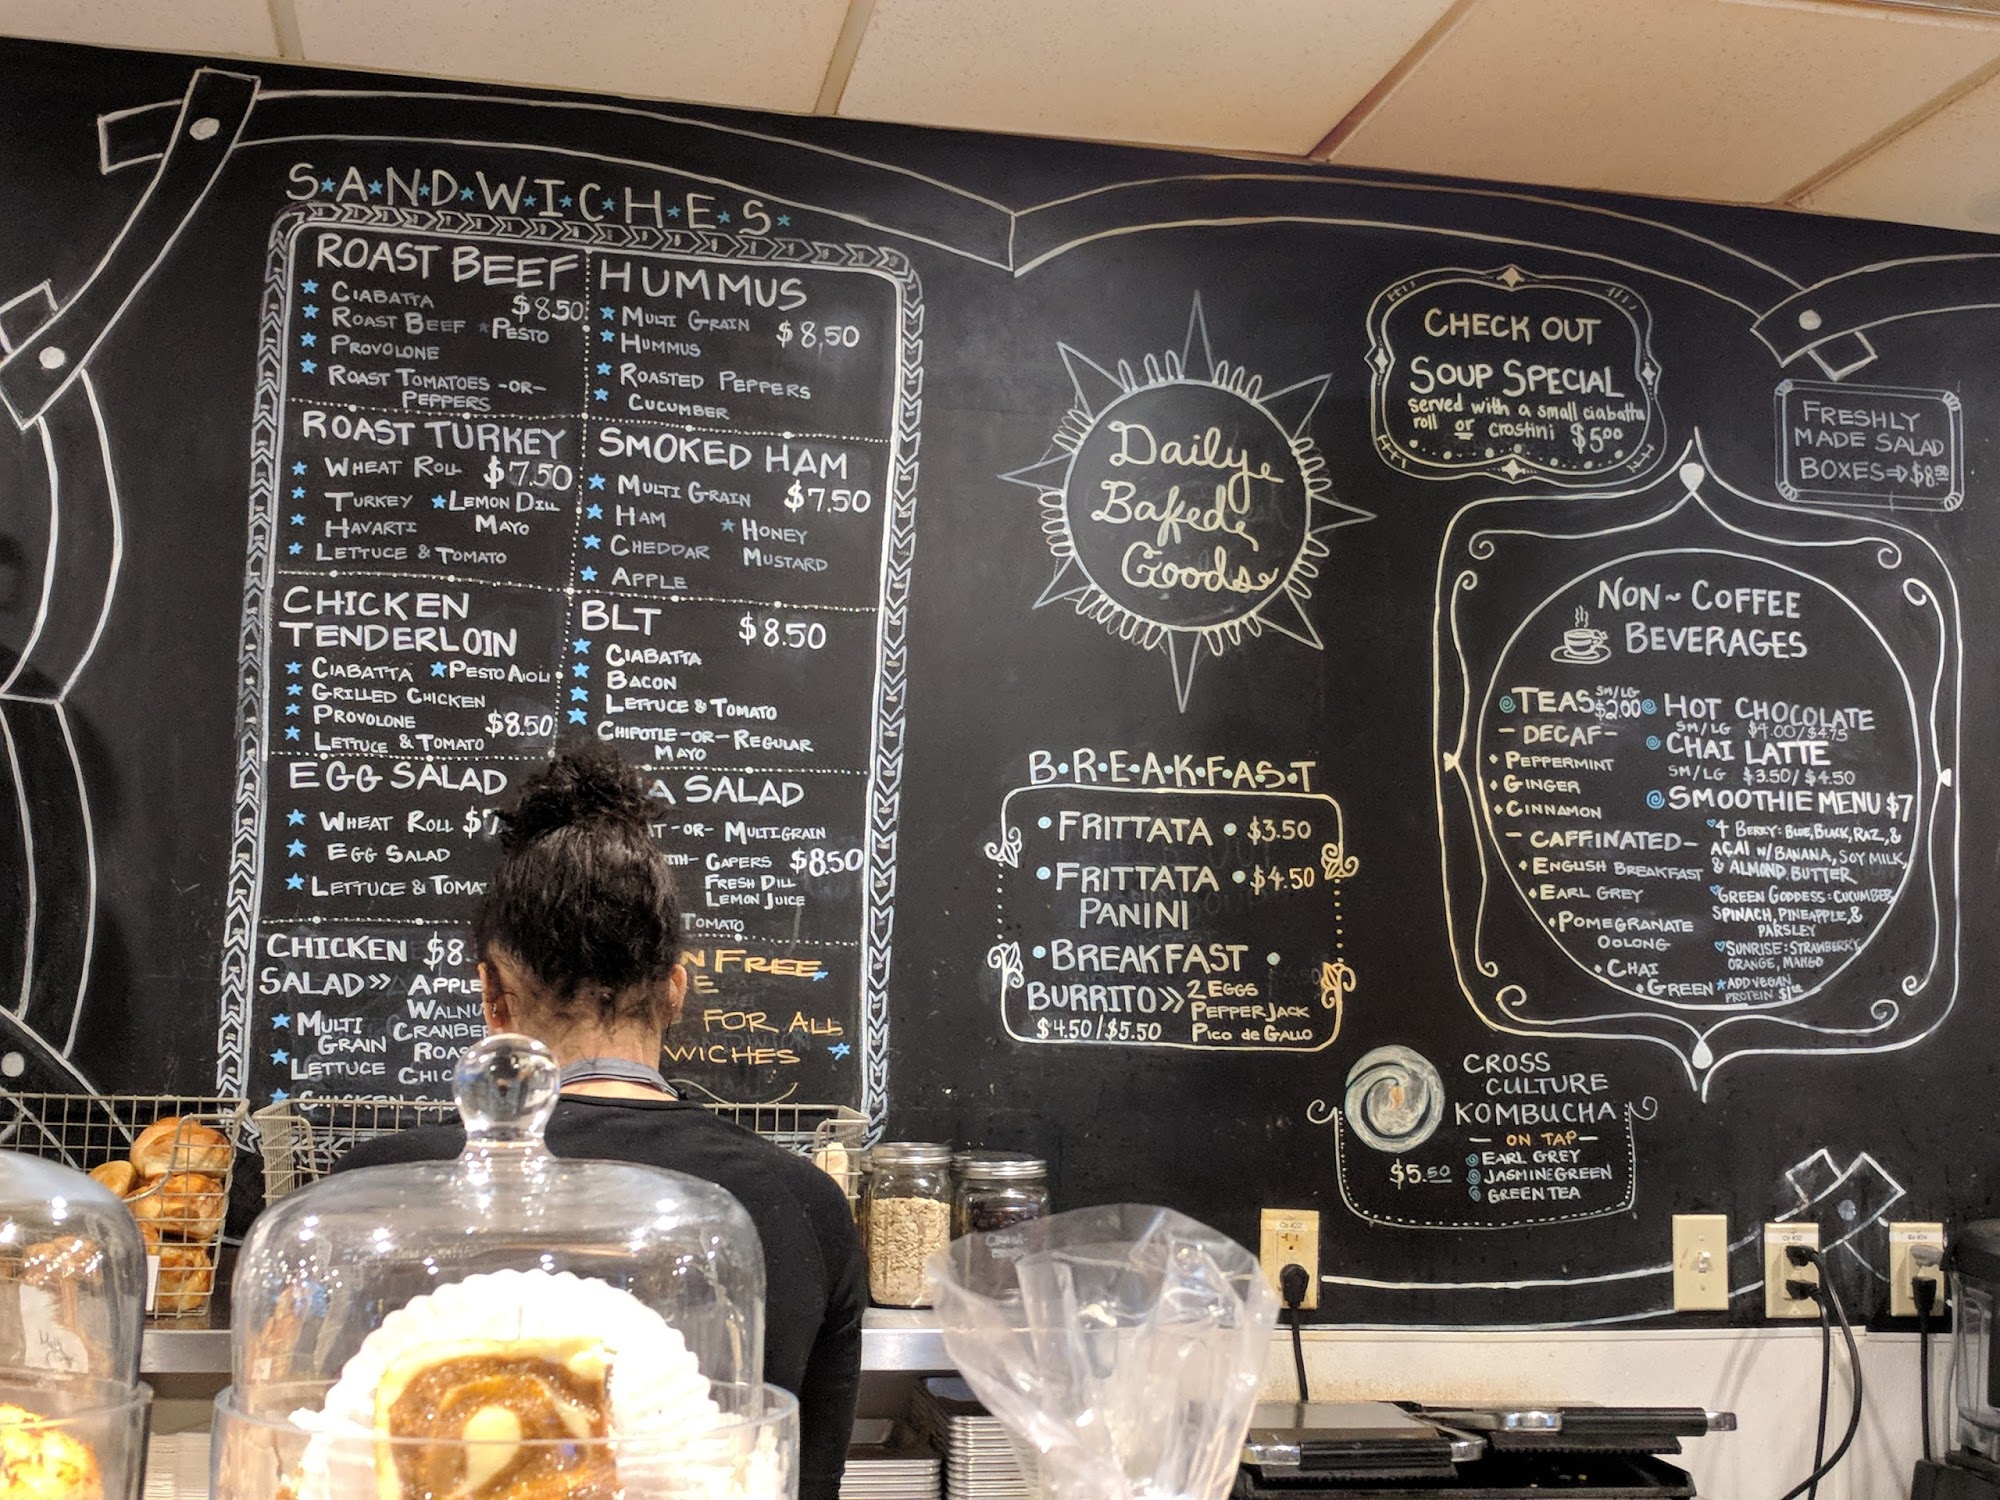 S★A★N★D★W★I★C★H★E★S★
ROAST BEEF
★ CIABATTA $8.50
★ ROAST BEEF ★ PESTO
★ PROVOLONE
★ ROAST TOMATOES -OR-
PEPPERS
HUMMUS
★ MULTI GRAIN $8.50
★ HUMMUS
★ ROASTED PEPPERS
★ CUCUMBER
ROAST TURKEY
★ WHEAT ROLL $7.50
★ TURKEY ★ LEMON DILL
MAYO
★ HAVARTI
★ LETTUCE & TOMATO
SMOKED HAM
★ MULTI GRAIN $7.50
★ HAM ★ HONEY
MUSTARD
★ CHEDDAR
★ APPLE
CHICKEN
TENDERLOIN
★ CIABATTA ★ PESTO AIOLI
★ GRILLED CHICKEN
★ PROVOLONE $8.50
★ LETTUCE & TOMATO
BLT $8.50
★ CIABATTA
★ BACON
★ LETTUCE & TOMATO
★ CHIPOTLE -OR- REGULAR
MAYO
EGG SALAD
★ WHEAT ROLL
★ EGG SALAD
★ LETTUCE &
SALAD
-OR- MULTIGRAIN
CAPERS $8.50
FRESH DILL
LEMON JUICE
TOMATO
CHICKEN
SALAD >> APPLE
★ MULTI
GRAIN
★ LETTUCE
FREE
FOR ALL
Daily
Baked
Goods
B•R•E•A•K•F•A•S•T
• FRITTATA • $3.50
• FRITTATA • $4.50
PANINI
• BREAKFAST •
BURRITO >> 2 EGGS
PEPPER JACK
$4.50/$5.50 PICO de GALLO
CHECK OUT
SOUP SPECIAL
served with a small ciabatta
roll or crostini $5.00
FRESHLY
MADE SALAD
BOXES → $8.50
NON~COFFEE
BEVERAGES
TEAS SM/LG
$2.00
- DECAF -
• PEPPERMINT
• GINGER
• CINNAMON
- CAFFINATED -
• ENGLISH BREAKFAST
• EARL GREY
• POMEGRANATE
OOLONG
• CHAI
• GREEN
HOT CHOCOLATE
SM/LG $4.00/$4.75
CHAI LATTE
SM/LG $3.50/$4.50
SMOOTHIE MENU $7
♥ 4 BERRY: BLUE, BLACK, RAZ, &
AÇAI W/ BANANA, SOY MILK,
& ALMOND BUTTER
♥ GREEN GODDESS: CUCUMBER
SPINACH, PINEAPPLE, &
PARSLEY
♥ SUNRISE: STRAWBERRY
ORANGE, MANGO
★ ADD VEGAN
PROTEIN
CROSS
CULTURE
KOMBUCHA
- ON TAP -
$5.50
EARL GREY
JASMINE GREEN
GREEN TEA